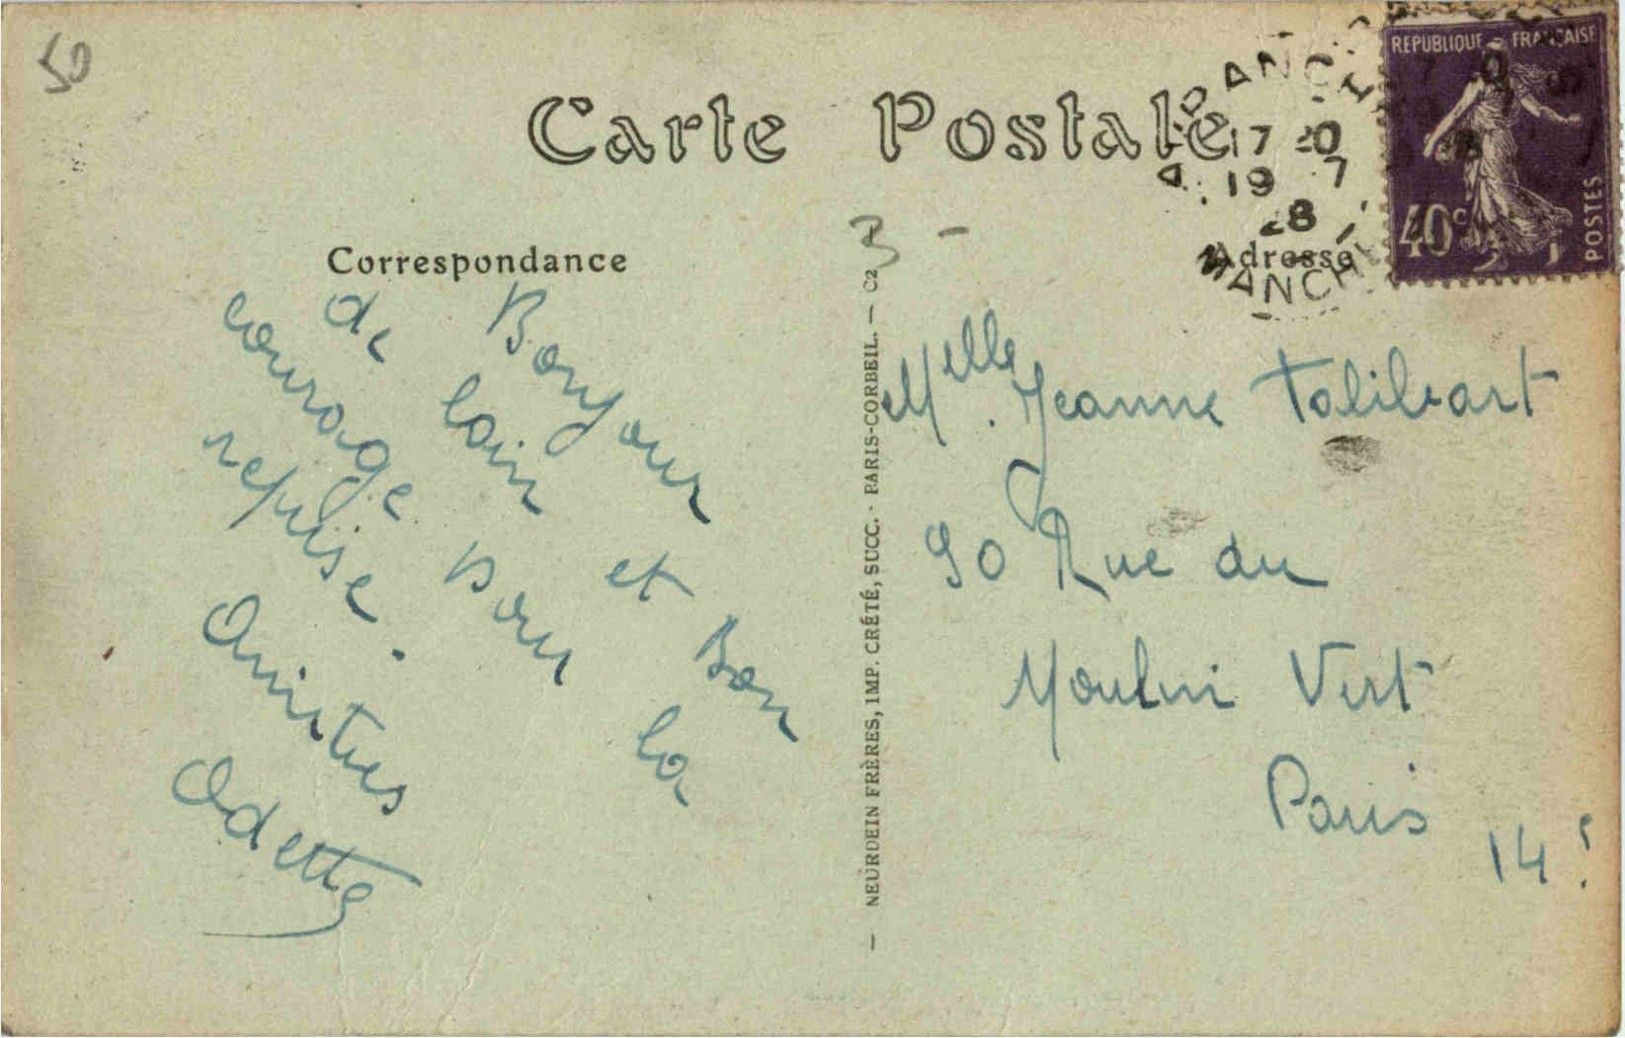 50
Carte Postale
REPUBLIQUE FRANÇAISE
40c
POSTES
AVRANCHES
17 20
19 7
28
MANCHE
3 -
Correspondance
Adresse
Bonjour
de loin et Bon
courage pour la
reprise.
Amitiés
Odette
- NEURDEIN FRÈRES, IMP. CRÉTÉ, SUCC. - PARIS-CORBEIL. - C2
Melle Jeanne
90 Rue du
Moulin Vert
Paris 14e